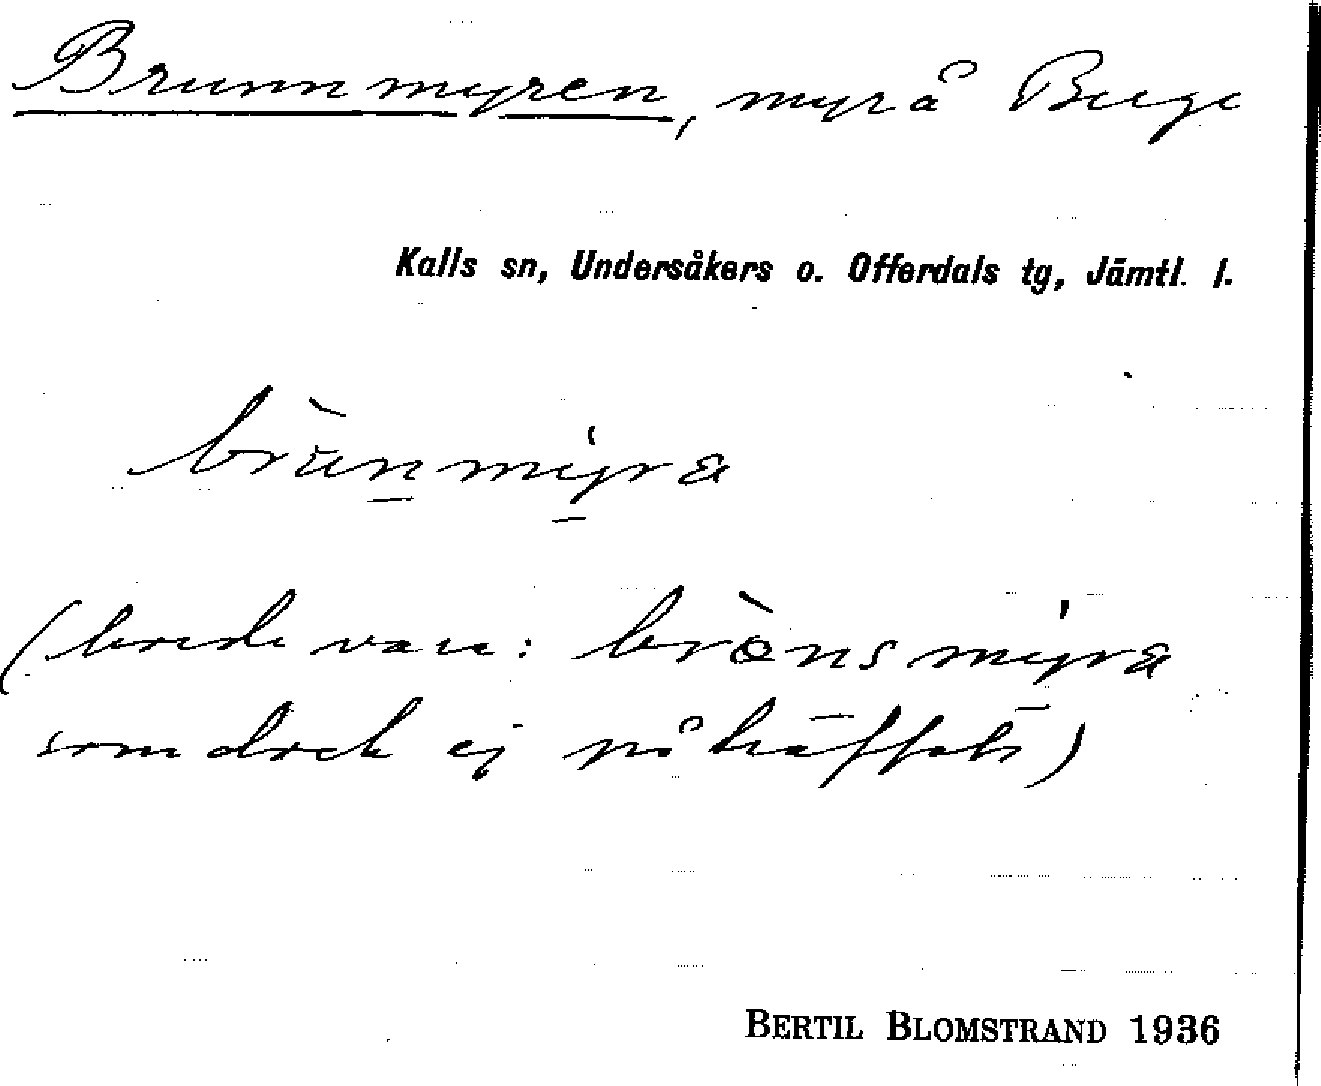 Brunnmyren, myr å Berge
Kalls sn, Undersåkers o. Offerdals tg, Jämtl. l.
brùnmýra
(borde vara: brònsmýra
som dock ej påträffats)
BERTIL BLOMSTRAND 1936